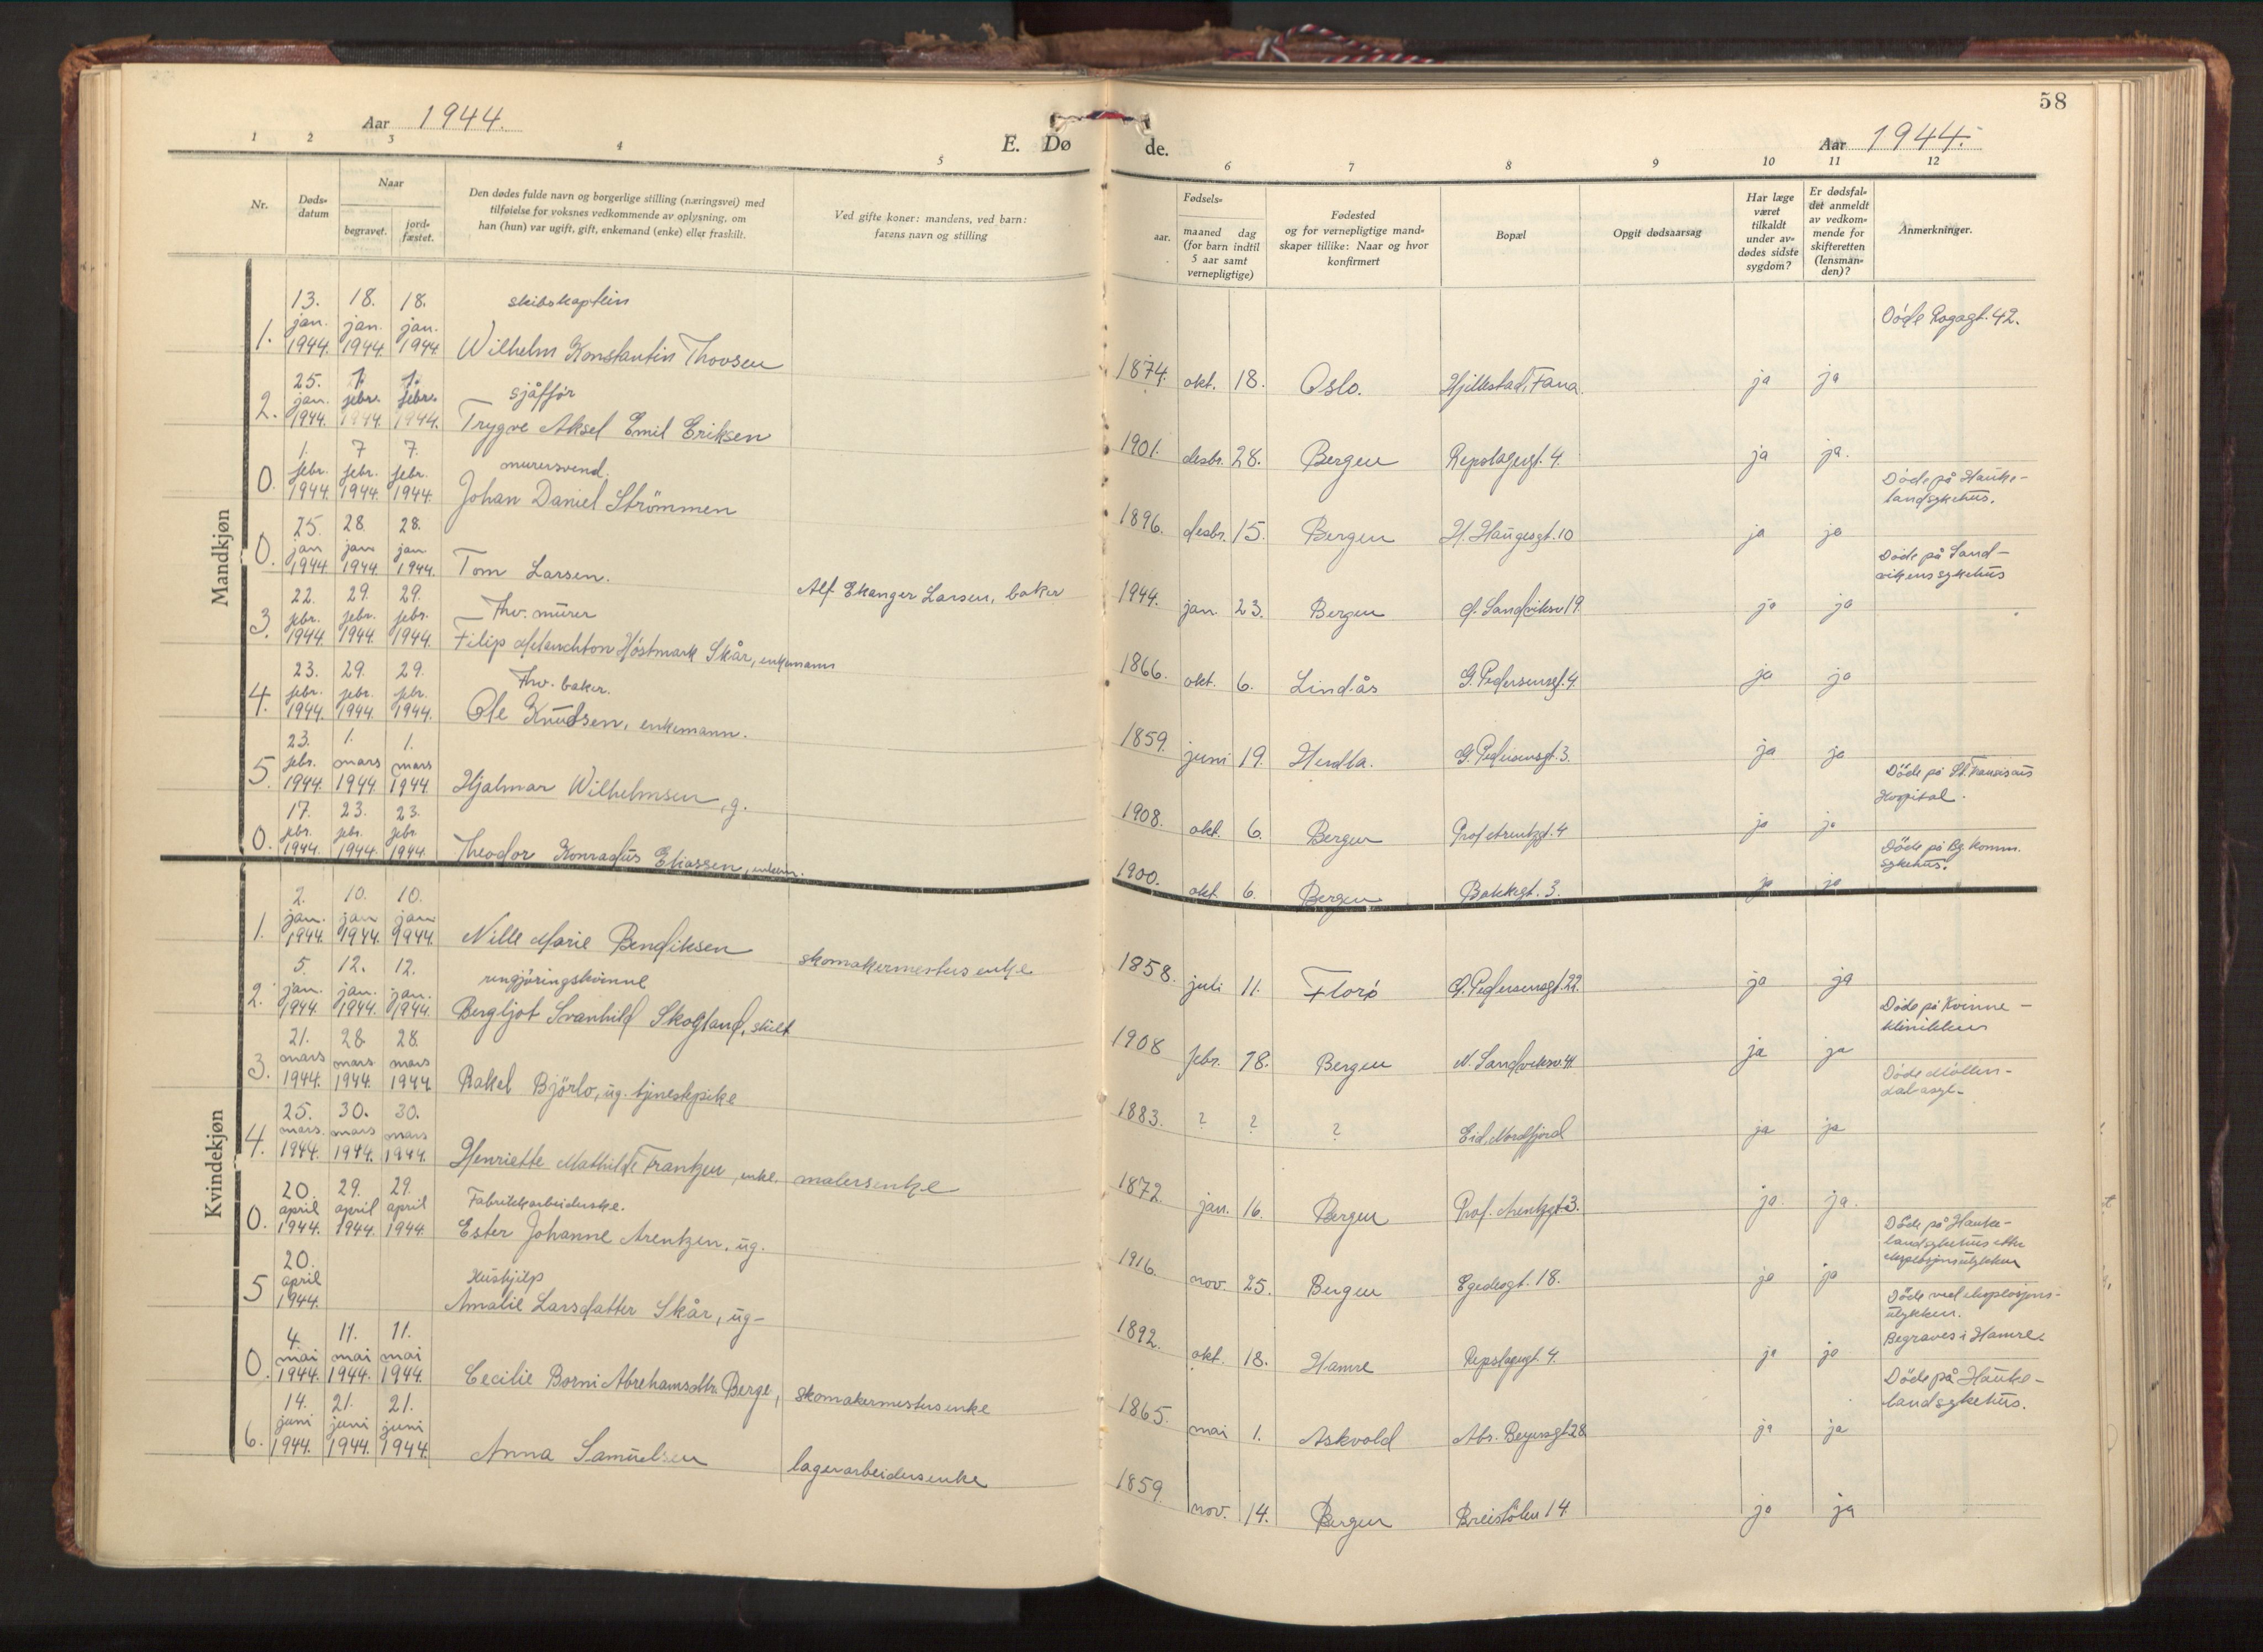 58
Aar 1944.
E. Dø
de.
Aar 1944.
1 2 3 4 5
6 7 8 9 10 11 12
Nr.
Døds-
datum
Naar
begravet.
jord-
fæstet.
Den dødes fulde navn og borgerlige stilling (næringsvei) med
tilføielse for voksnes vedkommende av oplysning, om
han (hun) var ugift, gift, enkemand (enke) eller fraskilt.
Ved gifte koner: mandens, ved barn:
farens navn og stilling
Fødsels-
aar.
maaned
(for barn indtil
5 aar samt
vernepligtige)
dag
Fødested
og for vernepligtige mand-
skaper tillike: Naar og hvor
konfirmert
Bopæl
Opgit dødsaarsag
Har læge
været
tilkaldt
under av-
dødes sidste
sygdom?
Er dødsfal-
det anmeldt
av vedkom-
mende for
skifteretten
(lensman-
den)?
Anmerkninger.
Mandkjøn
13. 18. 18. skibskaptein
jan. jan. jan.
1. 1944. 1944. 1944 Wilhelm Konstantin Thovsen
1874. okt. 18. Oslo. Hjellestad, Fana ja ja
Døde Rogagt. 42.
25. 1. 1. sjåffør
jan. febr. febr.
2. 1944. 1944. 1944. Trygve Aksel Emil Eriksen
1901. desbr. 28. Bergen Repslagergt. 4. ja ja.
1. 7 7. murersvend.
febr. febr. febr.
0. 1944. 1944. 1944. Johan Daniel Strömmen
1896. desbr. 15. Bergen H. Haugesgt. 10 ja ja
Døde på Hauke-
landsykehus.
25. 28. 28.
jan jan jan
0. 1944 1944. 1944. Tom Larsen.
Alf Ekanger Larsen, baker
1944. jan. 23. Bergen Sandviksv 19. ja ja
Døde på Sand-
vikens sykehus
22. 29. 29. Fhv. murer
febr. febr. febr.
3. 1944. 1944. 1944. Filip Melanchton Höstmark Skår, enkemann
1866. okt. 6. Lindås G. Pedersensgt. 4. ja ja
23. 29. 29. Fhv. baker.
febr. febr. febr.
4. 1944. 1944. 1944. Ole Knudsen, enkemann.
1859. juni 19. Herdla. G. Pedersensgt. 3. ja ja
23. 1. 1.
febr. mars mars
5. 1944. 1944. 1944 Hjalmar Wilhelmsen, g.
1908. okt. 6. Bergen Prof. Arentzgt. 4 ja ja
Døde på St. Fransiscus
Hospital.
17. 23. 23.
febr. febr. febr
0. 1944. 1944. 1944. Theodor Konradus Eliassen, enkem.
1900. okt 6. Bergen Bakkegt. 3. ja ja
Døde på Bg. Komm.
sykehus.
Kvindekjøn
2. 10. 10.
jan. jan jan
1. 1944. 1944. 1944. Nille Marie Bendiksen
skomakermesters enke
1858. juli 11. Florø G. Pedersensgt. 22. ja ja
5. 12. 12. rengjøringskvinne
jan. jan. jan.
2. 1944. 1944. 1944. Bergljot Svanhild Skogland, skilt
1908 febr. 18. Bergen N. Sandviksv. 41 ja ja
Døde på Kvinne-
klinikken
21. 28 28.
mars mars mars
3. 1944. 1944. 1944. Rakel Björlo, ug. tjenestepike
1883. ? ? ? Eid, Nordfjord ja ja
Døde Möllen-
dalsasyl-
25. 30. 30.
mars. mars mars
4. 1944. 1944. 1944. Henriette Mathilde Frantzen, enke.
malersenke
1872. jan. 16. Bergen Prof. Arentzgt 3. ja. ja.
20. 29. 29. Fabrikkarbeiderske.
april april april
0. 1944. 1944. 1944. Ester Johanne Arentzen, ug.
1916. nov. 25. Bergen Egedesgt. 18. ja ja
Døde på Hauke-
landsykehus etter
eksplosjonsulykken
20.
april Hushjelp
5 1944. Amalie Larsdatter Skår, ug-
1892. okt. 18. Hamre Repslagergt. 4. ja ja
Døde ved eksplosjons-
ulykken.
Begraves i Hamre.
4. 11. 11.
mai mai mai
0. 1944. 1944. 1944. Cecilie Borni Abrehamsdtr. Berge,
skomakermestersenke
1865. mai 1. Askvold Abs. Beyersgt 28 ja ja
Døde på Hauke-
landsykehus.
14. 21. 21.
juni juni juni
6. 1944. 1944. 1944. Anna Samuelsen
lagerarbeidersenke
1859. nov. 14. Bergen Breistölen 14. ja ja